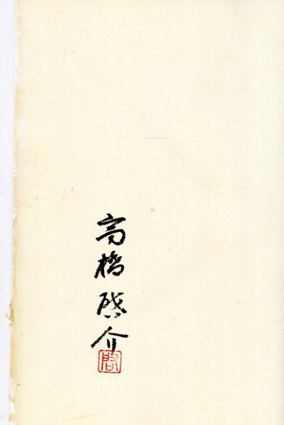 高橋啓介